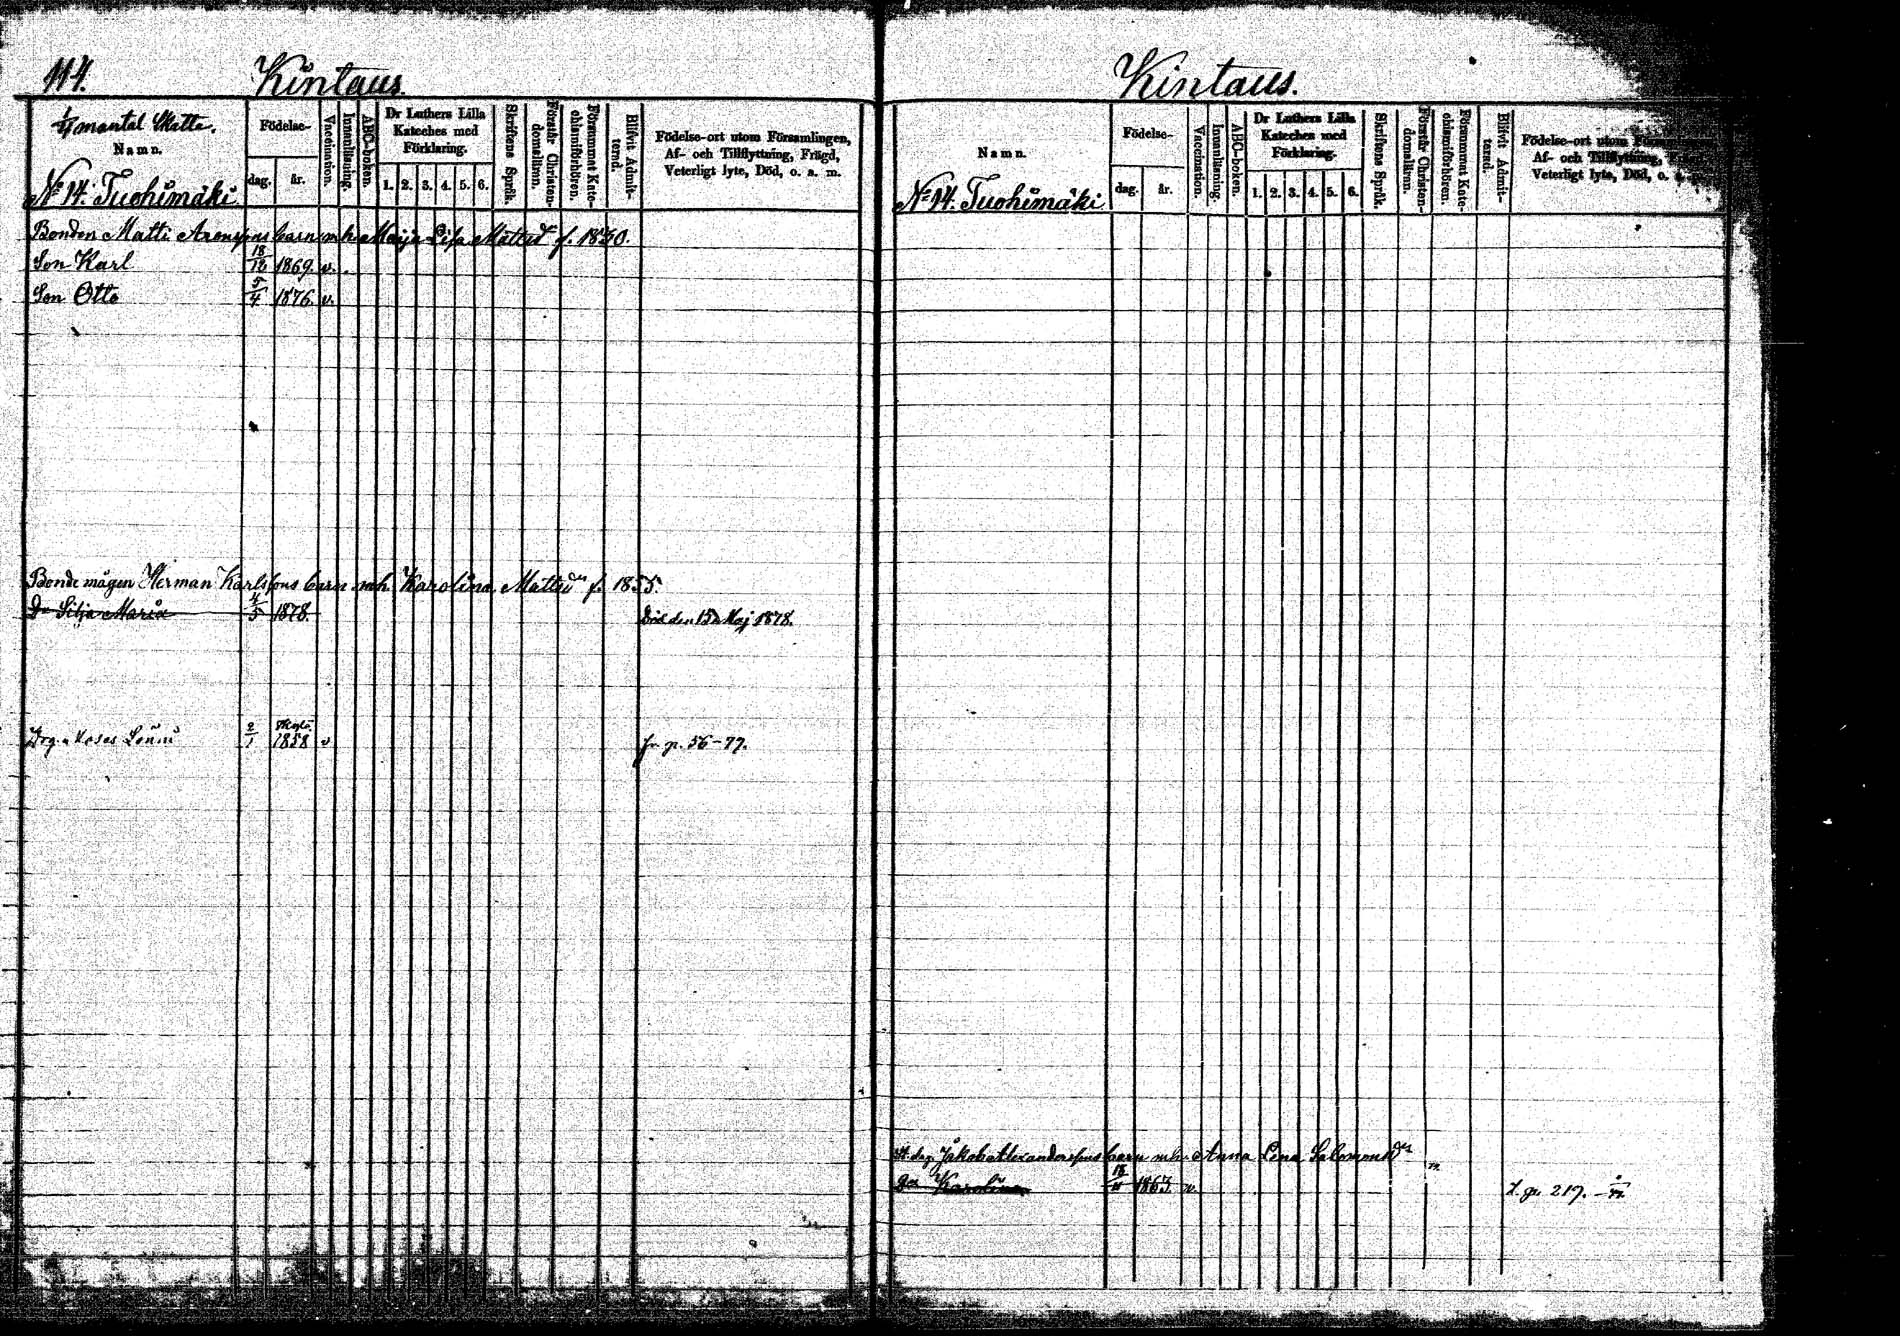 114.
Kintaus.
1/4 mantal Skatte.
Namn.
No 14. Tuohimäki
Födelse-
dag. år.
Vaccination.
Innanläsning.
ABC-boken.
Dr Luthers Lilla
Kateches med
Förklaring.
1. 2. 3. 4. 5. 6.
Skriftens Språk.
Förstår Christen-
domslkun.
Försummat Kate-
chismiförhören.
Blifvit Admit-
terad.
Födelse-ort utom Församlingen,
Af- och Tillflyttning, Frägd,
Veterligt lyte, Död, o. s. m.
Bonden Matti Aronssons barn m. h. Maija Lisa Mattsdr f. 1850.
Son Karl 18/12 1869. v.
Son Otto 5/4 1876. v.
Bonde mågen Herman Karlssons barn m.h. Karolina Mattsdr f. 1855.
Dr Silja Maria 4/5 1878. Död den 15 Maj 1878.
Drg. Moses 2/1 1858 v fr. p. 56-77.
Kintaus.
Namn.
No 14. Tuohimäki
Födelse-
dag. år.
Vaccination.
Innanläsning.
ABC-boken.
Dr Luthers Lilla
Kateches med
Förklaring.
1. 2. 3. 4. 5. 6.
Skriftens Språk.
Förstår Christen-
domslkun.
Försummat Kate-
chismiförhören.
Blifvit Admit-
terad.
Födelse-ort utom
Af- och Tillflyttning,
Veterligt lyte, Död, o.
Jakob Alexanderssons barn m.h. Anna Lena Salomonsdr
Dr Karolina 1863. v. t. p. 217.